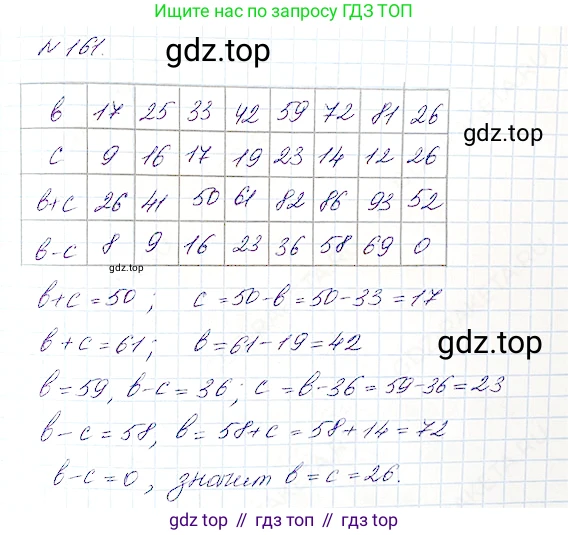 Ищите нас по запросу ГДЗ ТОП
N 161.
gdz.top
в 17 25 33 42 59 72 81 26
с 9 16 17 19 23 14 12 26
gdz.top
в+с 26 41 50 61 82 86 93 52
в-с 8 9 16 23 36 58 69 0
gdz.top
в+с=50; с=50-в=50-33=17
в+с=61; в=61-19=42
gdz.top
в=59, в-с=36; с=в-36=59-36=23
в-с=58, в=58+с=58+14=72
в-с=0, значит в=с=26.
gdz.top // гдз топ // гдз.топ